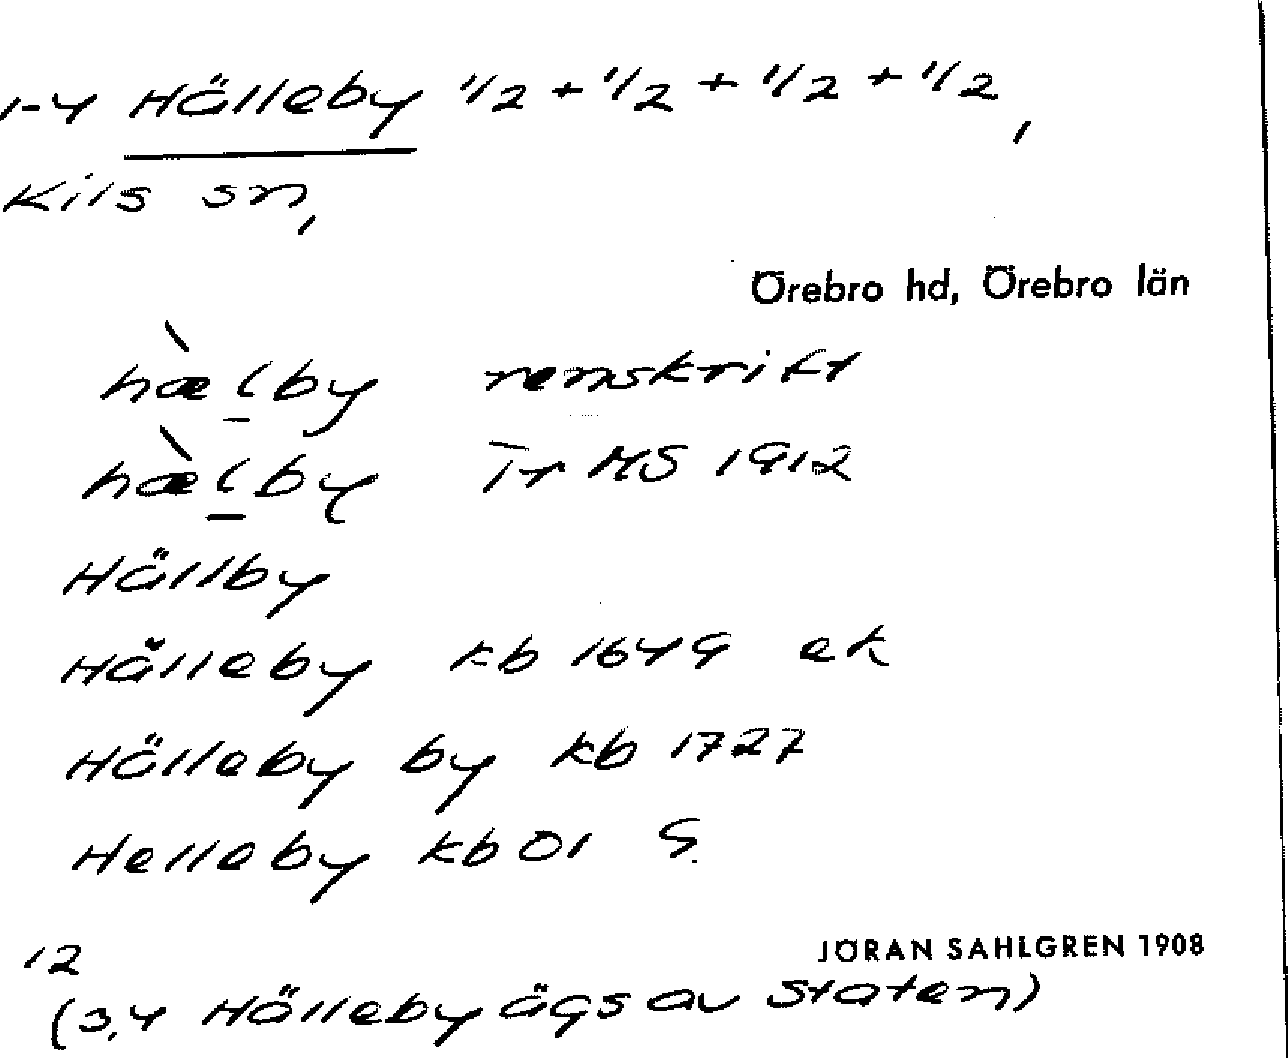 1-4 Hälleby 1/2 + 1/2 + 1/2 + 1/2,
Kils sn,
Örebro hd, Örebro län
hæ̀lby renskrift
hæ̀lby Tr HS 1912
Hällby
Hälleby kb 1649 ek
Hälleby by kb 1727
Helleby kb 01 G.
12
JÖRAN SAHLGREN 1908
(3,4 Hälleby ägs av Staten)